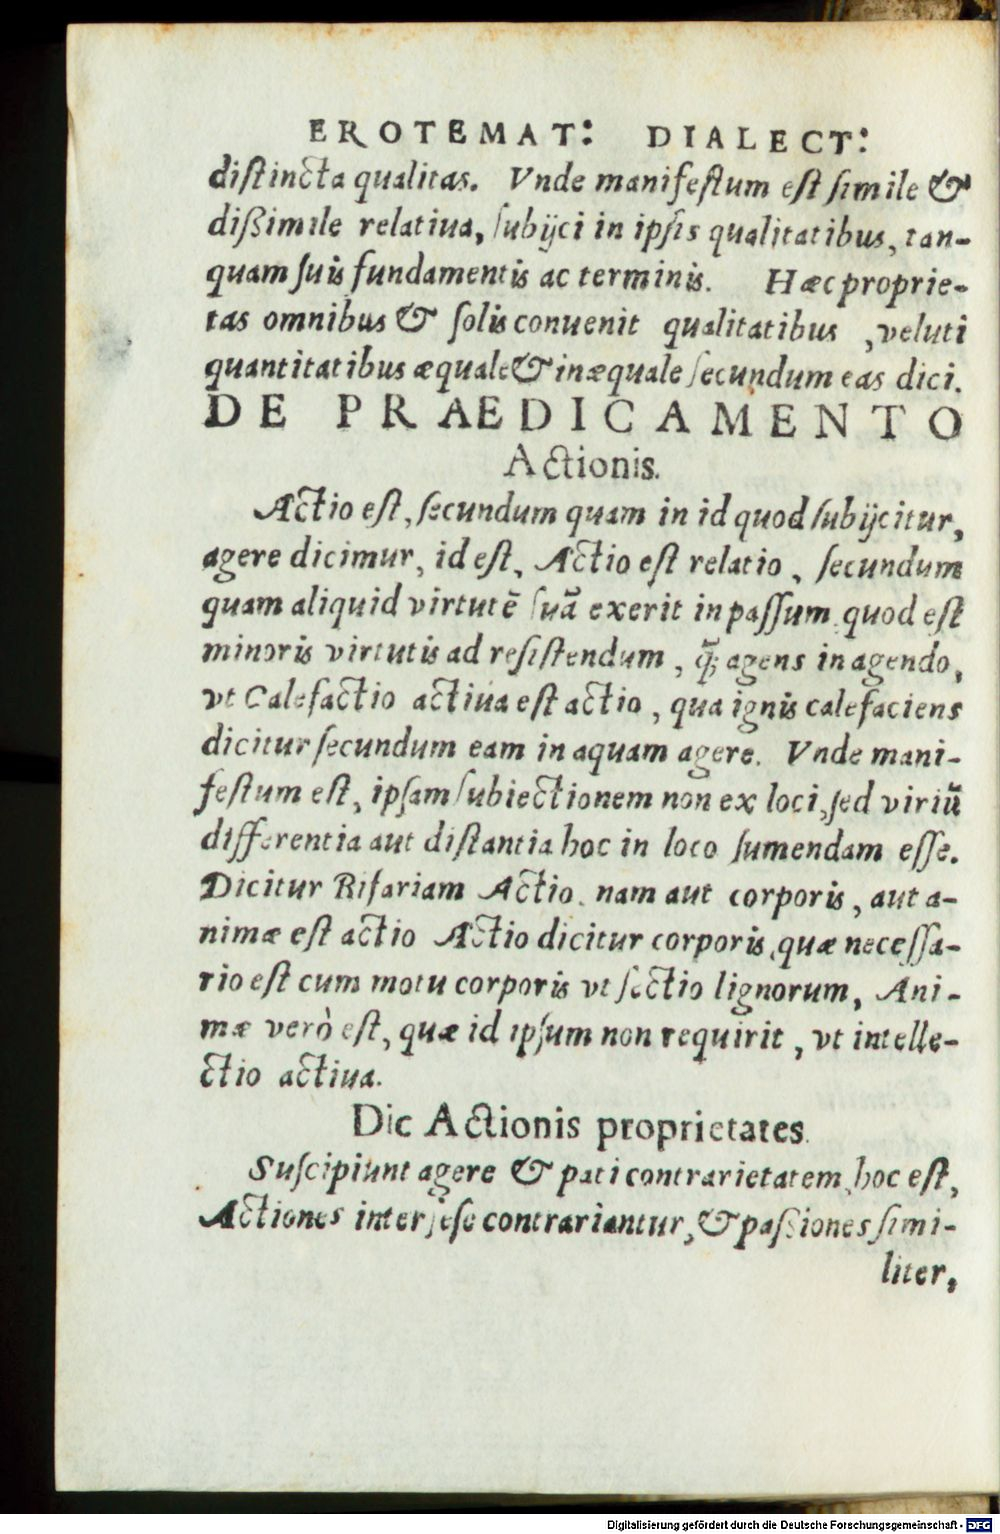 EROTEMAT: DIALECT:
distincta qualitas. Vnde manifestum est simile &
dißimile relatiua, subijci in ipsis qualitatibus, tan-
quam suis fundamentis ac terminis. Hæc proprie-
tas omnibus & solis conuenit qualitatibus , veluti
quantitatibus æquale & inæquale secundum eas dici.
DE PRAEDICAMENTO
Actionis.
Actio est, secundum quam in id quod subijcitur,
agere dicimur, id est, Actio est relatio, secundum
quam aliquid virtutē suā exerit in passum quod est
minoris virtutis ad resistendum , q̃ȝ agens in agendo,
vt Calefactio actiua est actio , qua ignis calefaciens
dicitur secundum eam in aquam agere. Vnde mani-
festum est, ipsam subiectionem non ex loci, sed viriū
differentia aut distantia hoc in loco sumendam esse.
Dicitur Bifariam Actio. nam aut corporis, aut a-
nimæ est actio Actio dicitur corporis, quæ necessa-
rio est cum motu corporis vt sectio lignorum, Ani-
mæ verò est, quæ id ipsum non requirit , vt intelle-
ctio actiua.
Dic Actionis proprietates.
Suscipiunt agere & pati contrarietatem, hoc est,
Actiones inter sese contrariantur, & paßiones simi-
liter,
Digitalisierung gefördert durch die Deutsche Forschungsgemeinschaft - DFG